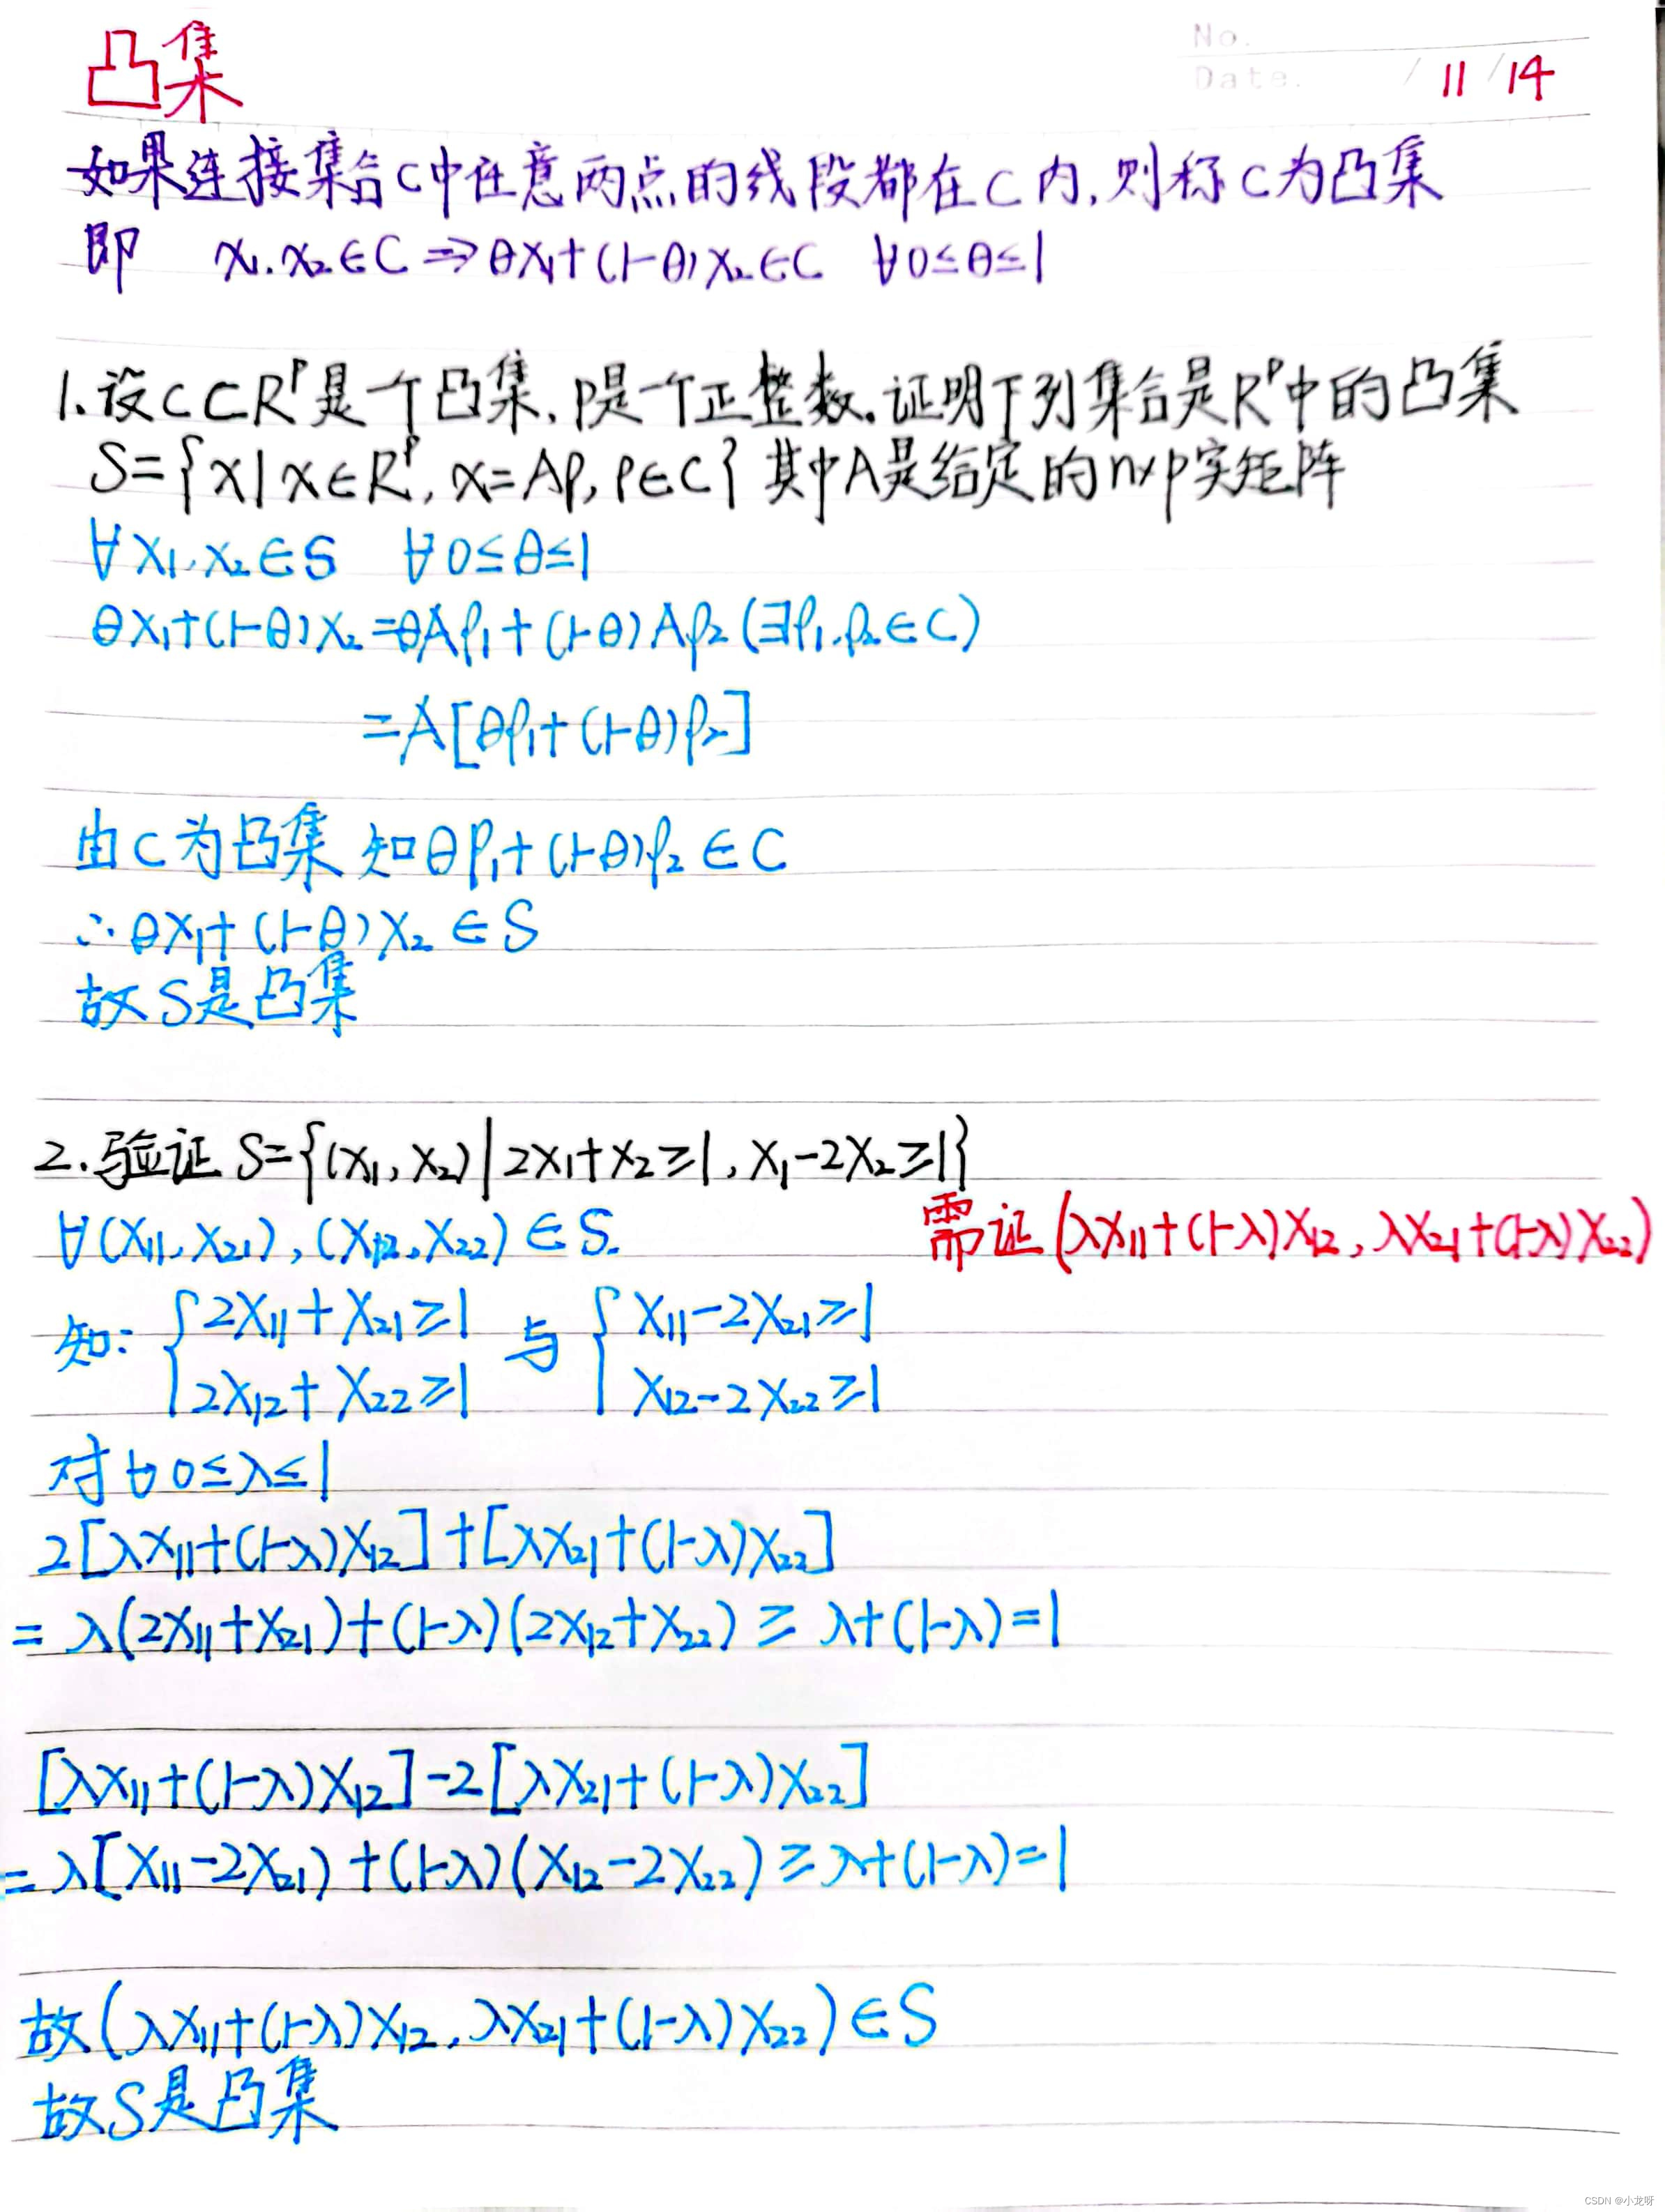 No.
Date. / 11 / 14
凸集
如果连接集合C中任意两点的线段都在C内,则称C为凸集
即 x₁.x₂∈C⇒θx₁+(1-θ)x₂∈C ∀0≤θ≤1
1.设C⊂Rᵖ是一个凸集,p是一个正整数.证明下列集合是Rᵖ中的凸集
S={x|x∈Rᵖ,x=Aρ,ρ∈C}其中A是给定的n×p实矩阵
∀x₁,x₂∈S ∀0≤θ≤1
θx₁+(1-θ)x₂=θAρ₁+(1-θ)Aρ₂(∃ρ₁.ρ₂∈C)
=A[θρ₁+(1-θ)ρ₂]
由C为凸集 知θρ₁+(1-θ)ρ₂∈C
∴θx₁+(1-θ)x₂∈S
故S是凸集
2.验证S={(x₁,x₂)|2x₁+x₂≥1,x₁-2x₂≥1}
∀(x₁₁,x₂₁),(x₁₂,x₂₂)∈S. 需证(λx₁₁+(1-λ)x₁₂,λx₂₁+(1-λ)x₂₂)
知: {2x₁₁+x₂₁≥1 与 {x₁₁-2x₂₁≥1
2x₁₂+x₂₂≥1 x₁₂-2x₂₂≥1
对∀0≤λ≤1
2[λx₁₁+(1-λ)x₁₂]+[λx₂₁+(1-λ)x₂₂]
=λ(2x₁₁+x₂₁)+(1-λ)(2x₁₂+x₂₂)≥λ+(1-λ)=1
[λx₁₁+(1-λ)x₁₂]-2[λx₂₁+(1-λ)x₂₂]
=λ[x₁₁-2x₂₁)+(1-λ)(x₁₂-2x₂₂)≥λ+(1-λ)=1
故(λx₁₁+(1-λ)x₁₂,λx₂₁+(1-λ)x₂₂)∈S
故S是凸集
CSDN @小龙呀